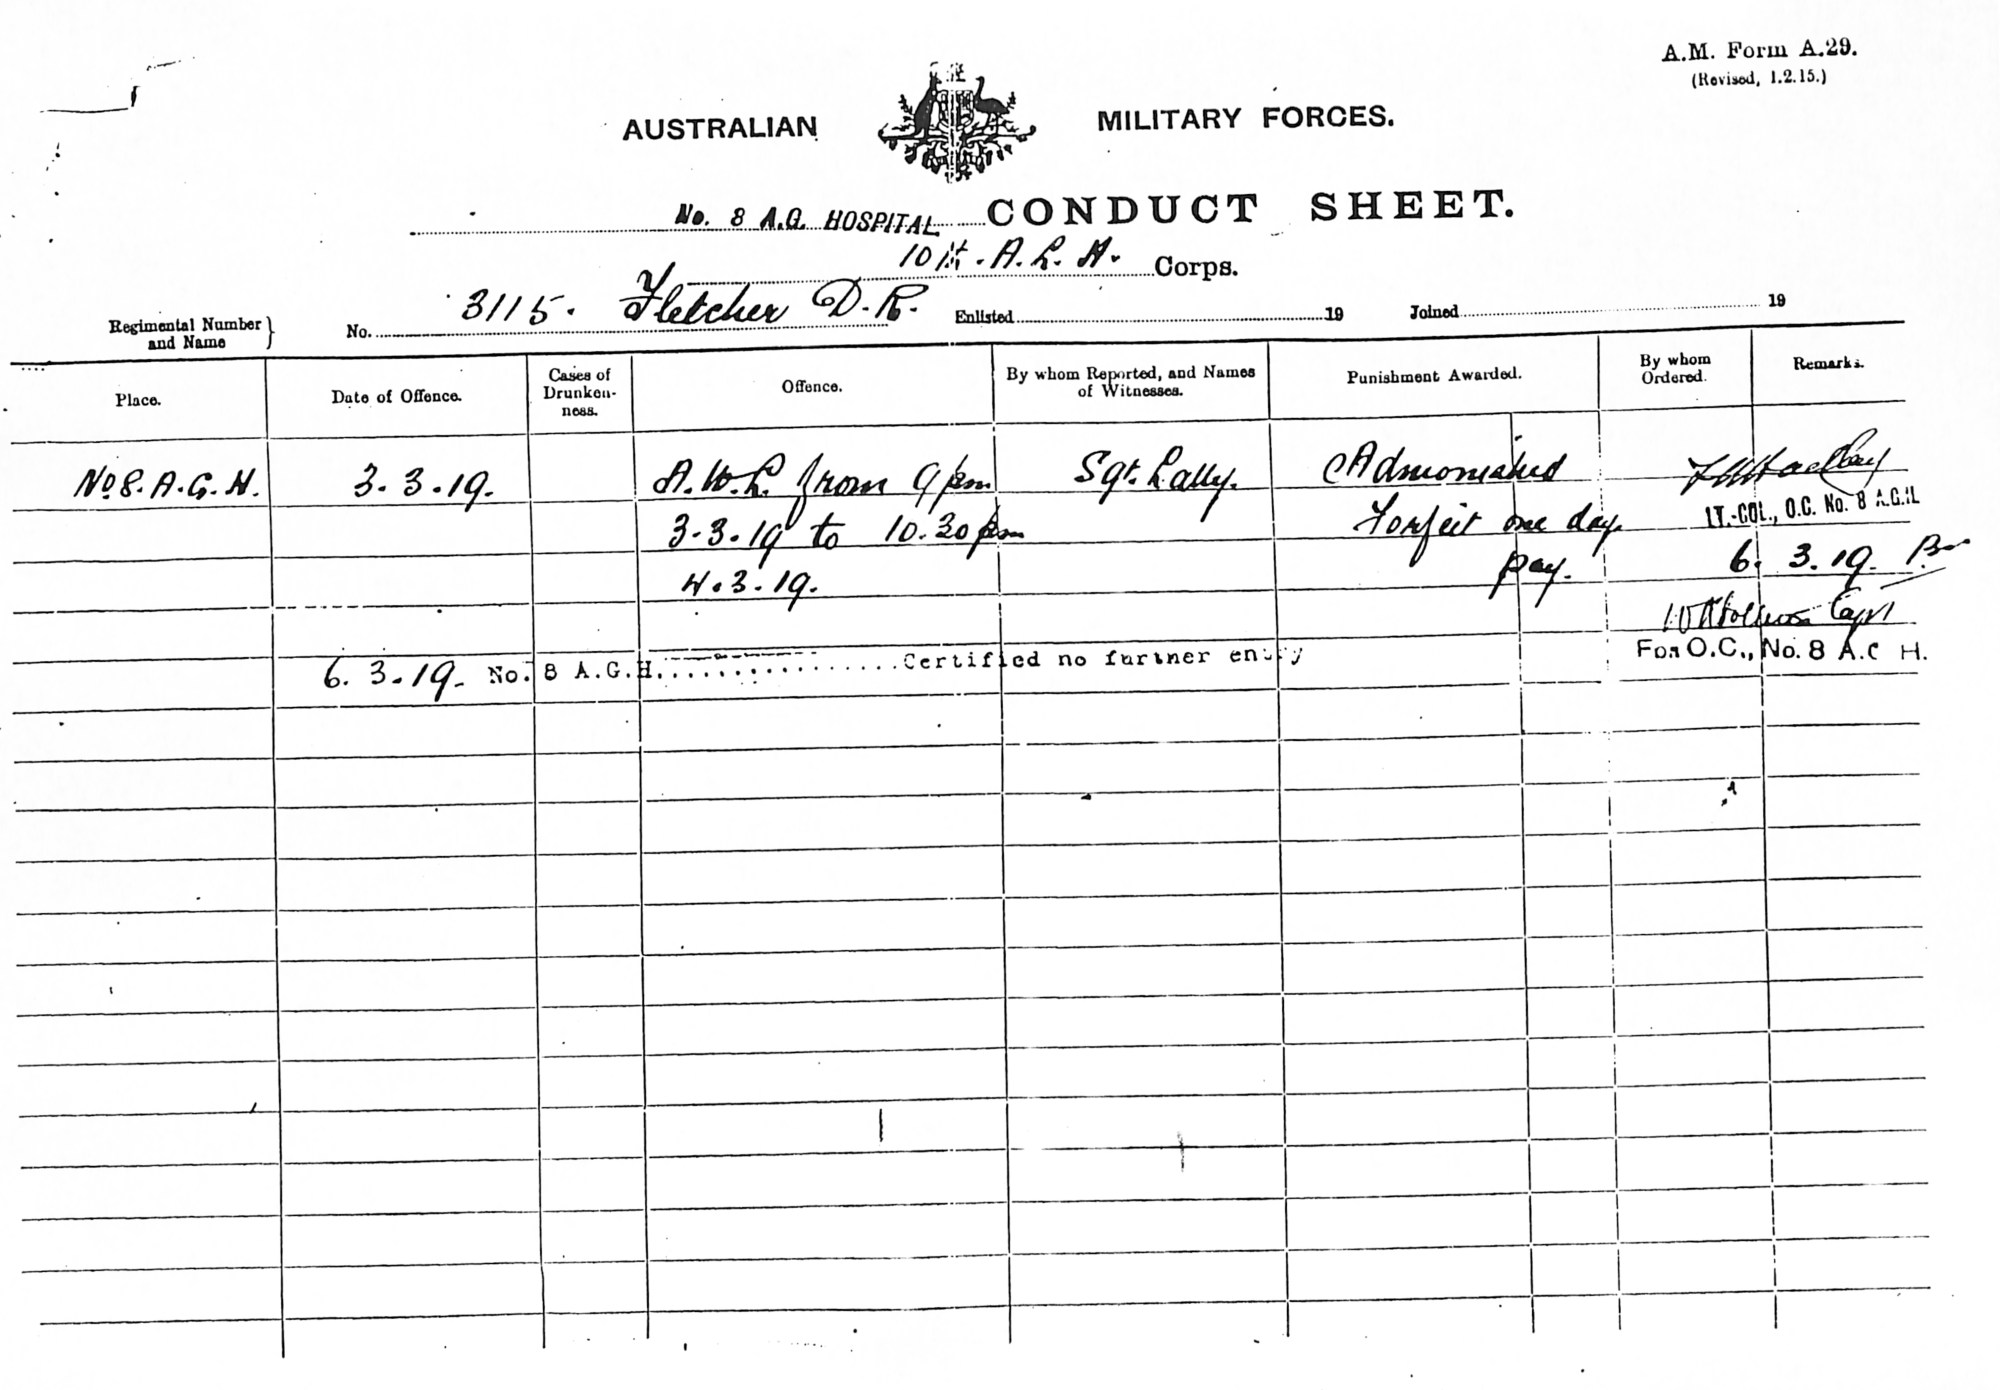 A.M. Form A.29.
(Revised, 1.2.15.)
AUSTRALIAN MILITARY FORCES.
No. 8 A.G. HOSPITAL CONDUCT SHEET.
10th. A.L.H. Corps.
Regimental Number and Name } No. 3115. Fletcher D.R. Enlisted 19 Joined 19
Place. Date of Offence. Cases of Drunkenness. Offence. By whom Reported, and Names of Witnesses. Punishment Awarded. By whom Ordered. Remarks.
No 8. A.G.H. 3.3.19. A.W.L. from 9 pm Sgt. Lally. Admonished
3.3.19 to 10.30 pm Forfeit one day LT.-COL., O.C. No. 8 A.G.H.
4.3.19. pay. 6. 3.19.
Capt
6.3.19. No. 8 A.G.H. Certified no further entry For O.C., No. 8 A.G H.